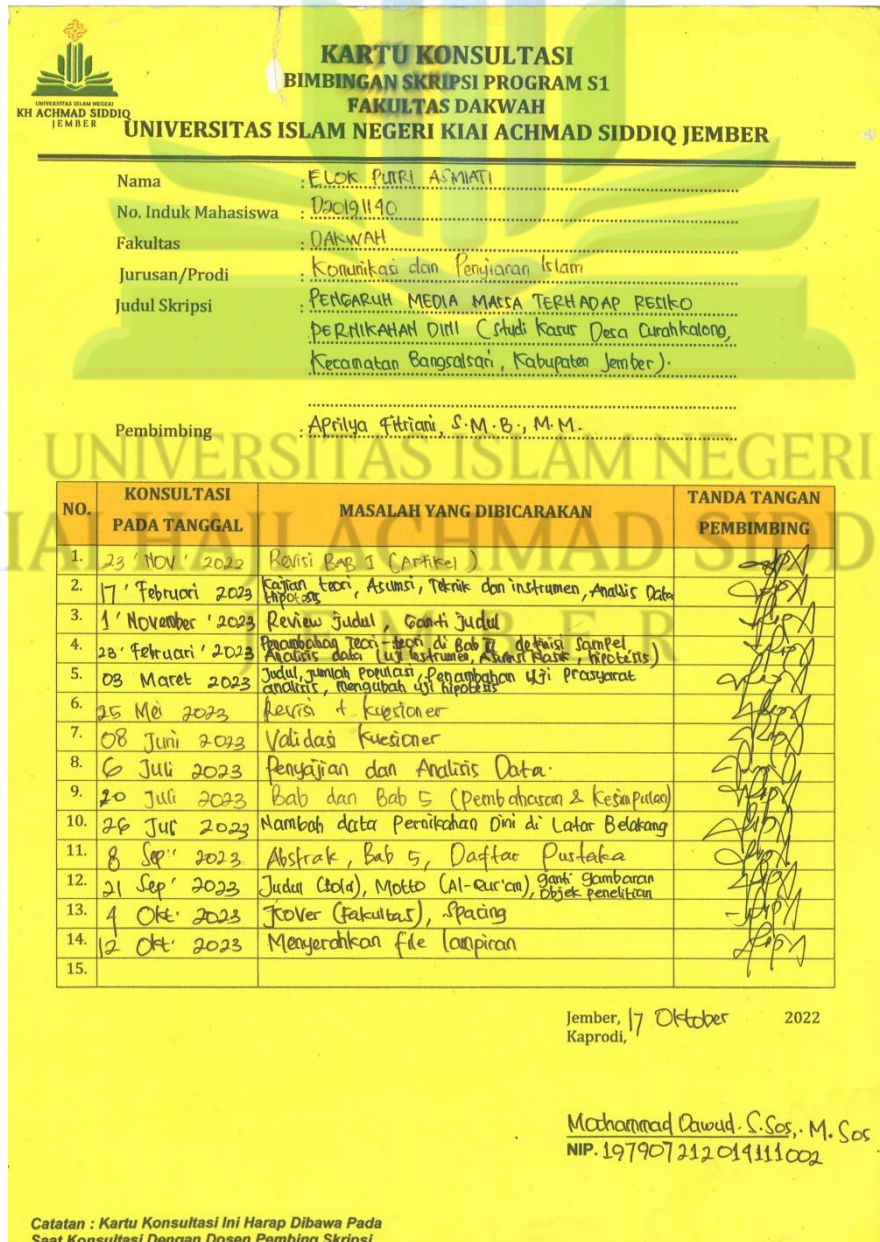 UNIVERSITAS ISLAM NEGERI
KH ACHMAD SIDDIQ
JEMBER
KARTU KONSULTASI
BIMBINGAN SKRIPSI PROGRAM S1
FAKULTAS DAKWAH
UNIVERSITAS ISLAM NEGERI KIAI ACHMAD SIDDIQ JEMBER
Nama : ELOK PUTRI ASMIATI
No. Induk Mahasiswa : D20191140
Fakultas : DAKWAH
Jurusan/Prodi : Komunikasi dan Penyiaran Islam
Judul Skripsi : PENGARUH MEDIA MASSA TERHADAP RESIKO
PERNIKAHAN DINI (Studi Kasus Desa Curahkalong,
Kecamatan Bangsalsari, Kabupaten Jember).
Pembimbing : Aprilya Fitriani, S.M.B., M.M.
UNIVERSITAS ISLAM NEGERI
IAI HAJI ACHMAD SIDD
JEMBER
NO. KONSULTASI PADA TANGGAL MASALAH YANG DIBICARAKAN TANDA TANGAN PEMBIMBING
1. 23 ' NOV ' 2022 Revisi BAB 1 (Artikel)
2. 17 ' Februari 2023 Kajian teori, Asumsi, Teknik dan instrumen, Analisis Data
Hipotesis
3. 1 ' November ' 2023 Review judul, Ganti judul
4. 28 ' Februari ' 2023 Penambahan Teori-teori di Bab II definisi Sampel
Analisis data (uji Instrumen, Asumsi Klasik, hipotesis)
5. 03 Maret 2023 Judul, jumlah populasi, Penambahan uji Prasyarat
analisis, mengubah uji hipotesis
6. 25 Mei 2023 Revisi + kuesioner
7. 08 Juni 2023 Validasi kuesioner
8. 6 Juli 2023 Penyajian dan Analisis Data.
9. 20 Juli 2023 Bab dan Bab 5 (Pembahasan & Kesimpulan)
10. 26 Jul 2023 Nambah data Pernikahan Dini di Latar Belakang
11. 8 Sep' 2023 Abstrak, Bab 5, Daftar Pustaka
12. 21 Sep' 2023 Judul (Bold), Motto (Al-Qur'an), ganti gambaran
Objek penelitian
13. 4 Okt. 2023 Cover (Fakultas), Spacing
14. 12 Okt. 2023 Menyerahkan file lampiran
15.
Jember, 17 Oktober 2022
Kaprodi,
Mochammad Dawud. S.Sos,. M.Sos
NIP. 197907212014111002
Catatan : Kartu Konsultasi Ini Harap Dibawa Pada
Saat Konsultasi Dengan Dosen Pembing Skripsi